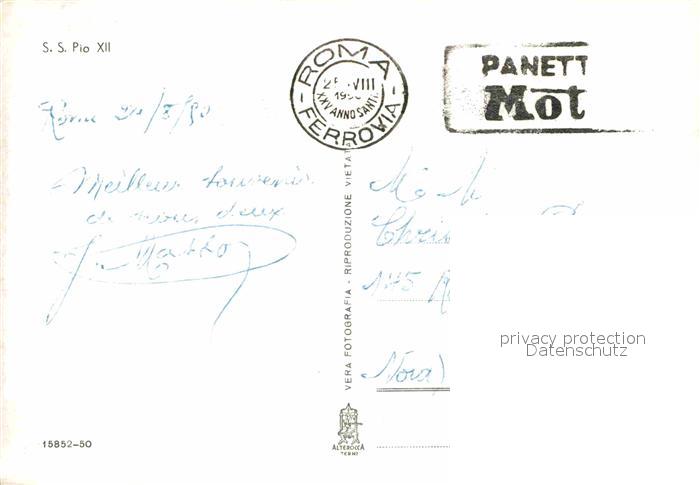 S. S. Pio XII
ROMA
VIII
XXV ANNO SANTO
FERROVIA
PANETT
Mot
Roma 24/8/50
Meilleur souvenir
de nous deux
VERA FOTOGRAFIA - RIPRODUZIONE VIETATA
145
privacy protection
Datenschutz
15852-50
ALTEROCCA
TERNI